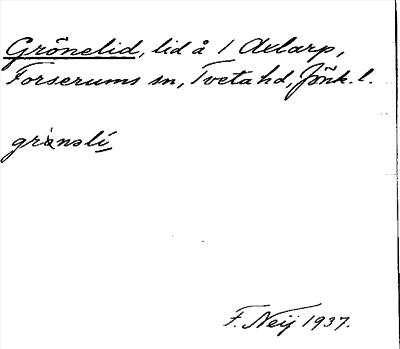 Grönelid, lid å 1 Axlarp,
Forserums sn, Tveta hd, Jönk. l.
grönalí
F. Neij 1937.